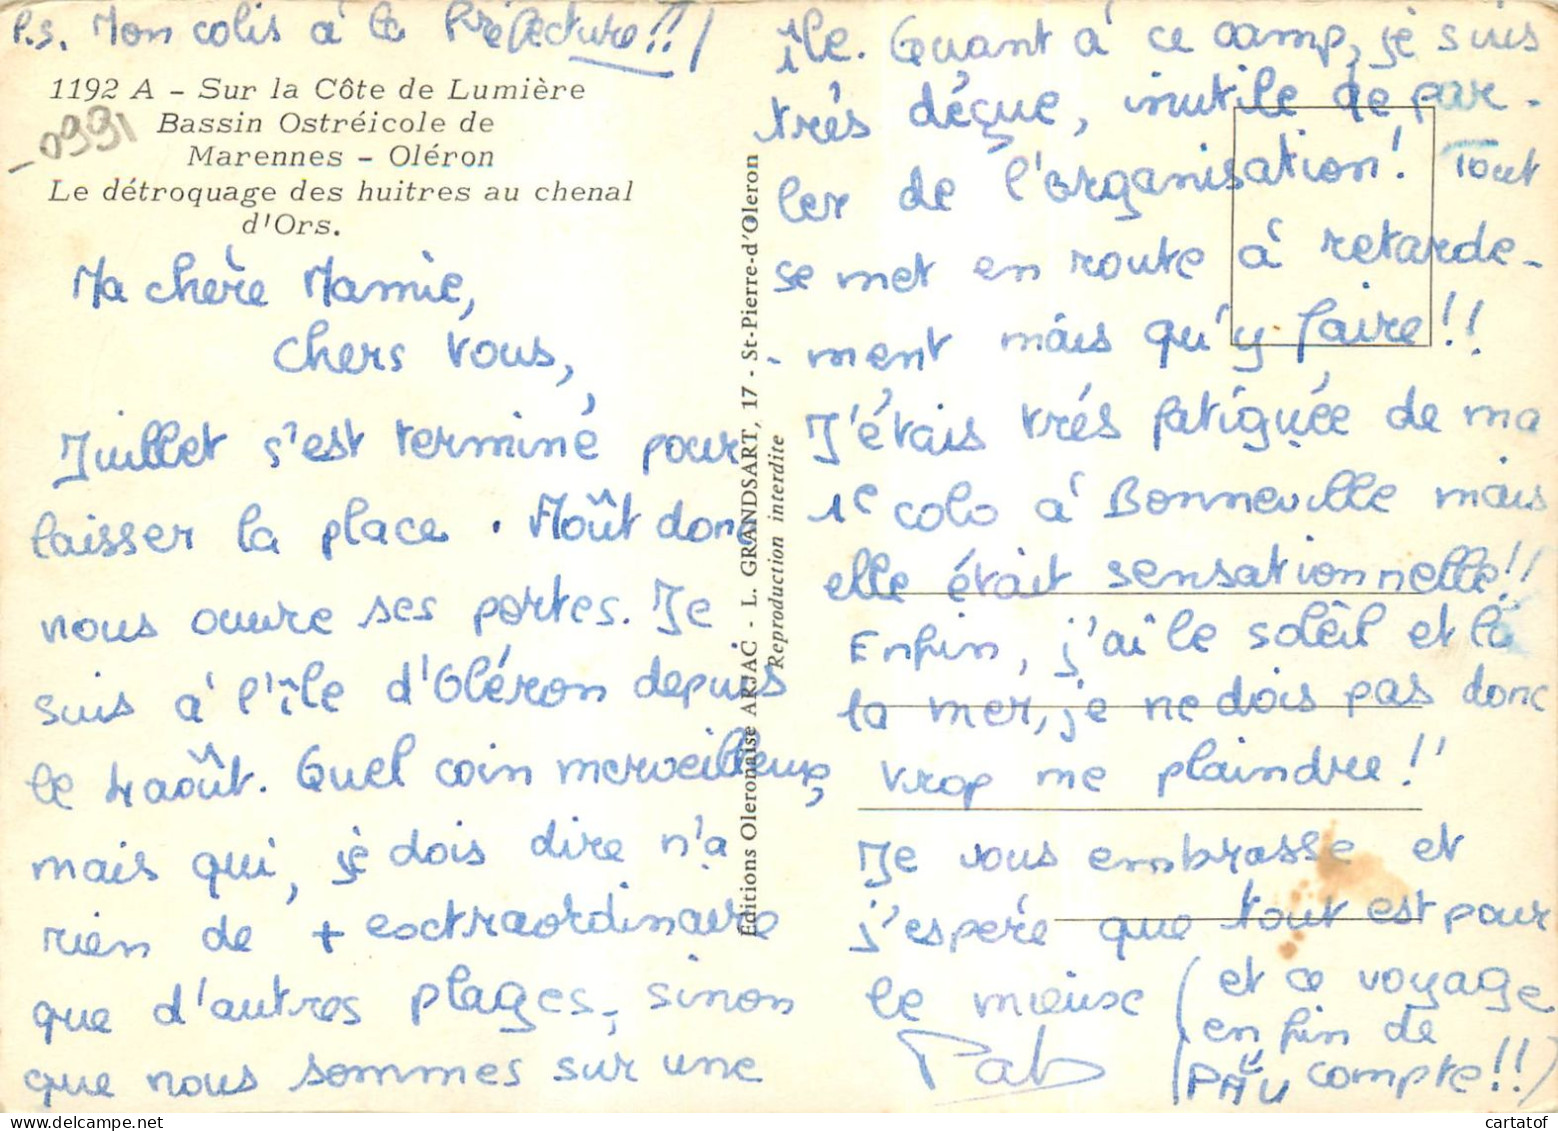 P.S. Mon colis à la Préfecture!!
1192 A - Sur la Côte de Lumière
Bassin Ostréicole de
Marennes - Oléron
Le détroquage des huitres au chenal
d'Ors.
0991
Ma chère Mamie,
Chers vous,
Juillet s'est terminé pour
laisser la place. Août donc
nous ouvre ses portes. Je
suis à l'île d'Oléron depuis
le 4 août. Quel coin merveilleux,
mais qui, je dois dire n'a
rien de + extraordinaire
que d'autres plages, sinon
que nous sommes sur une
Éditions Oleronaise ARJAC - L. GRANDSART, 17 - St-Pierre-d'Oleron
Reproduction interdite
île. Quant à ce camp, je suis
très déçue, inutile de par-
ler de l'organisation! Tout
se met en route à retarde-
-ment mais qu'y faire!!
J'étais très fatiguée de ma
1e colo à Bonneville mais
elle était sensationnelle!!
Enfin, j'ai le soleil et là
la mer, je ne dois pas donc
trop me plaindre!!
Je vous embrasse et
j'espère que tout est pour
le mieux (et ce voyage
enfin de
compte!!)
PAU
Pab
cartatof